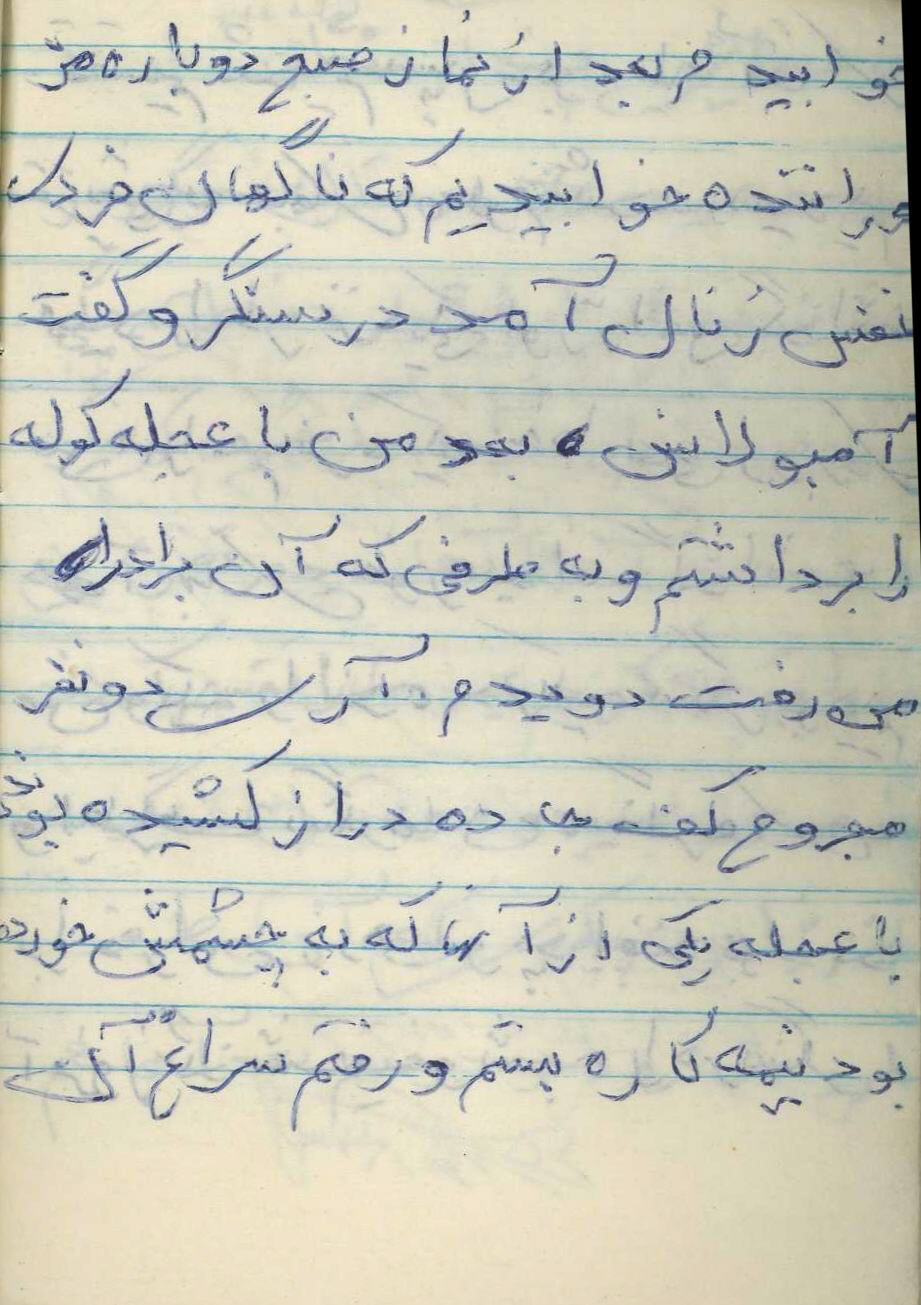 خوابیدم بعد از نماز صبح دوباره من
و راننده خوابیدیم که ناگهان فردی
نفس زنان آمد در سنگر و گفت
آمبولانس بعد من با عجله کوله
را برداشتم و به طرفی که آن برادر
می رفت دویدم. آری دو نفر
مجروح کف جاده دراز کشیده بودند
با عجله یکی از آنها که به چشمش خورده
بود نیمه کاره بستم و رفتم سراغ آن